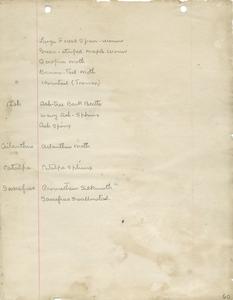 Large Forest Span-worms
Green-striped Maple Worm
Cecropia Moth
Brown-Tail Moth
Horntail (Tremex)
Ash Ash-tree Bark Beetle
Wavy Ash-Sphinx
Ash Sphinx
Ailanthus Ailanthus Moth
Catalpa Catalpa Sphinx
Sassafras Promethean Silkmoth
Sassafras Swallowtail
60